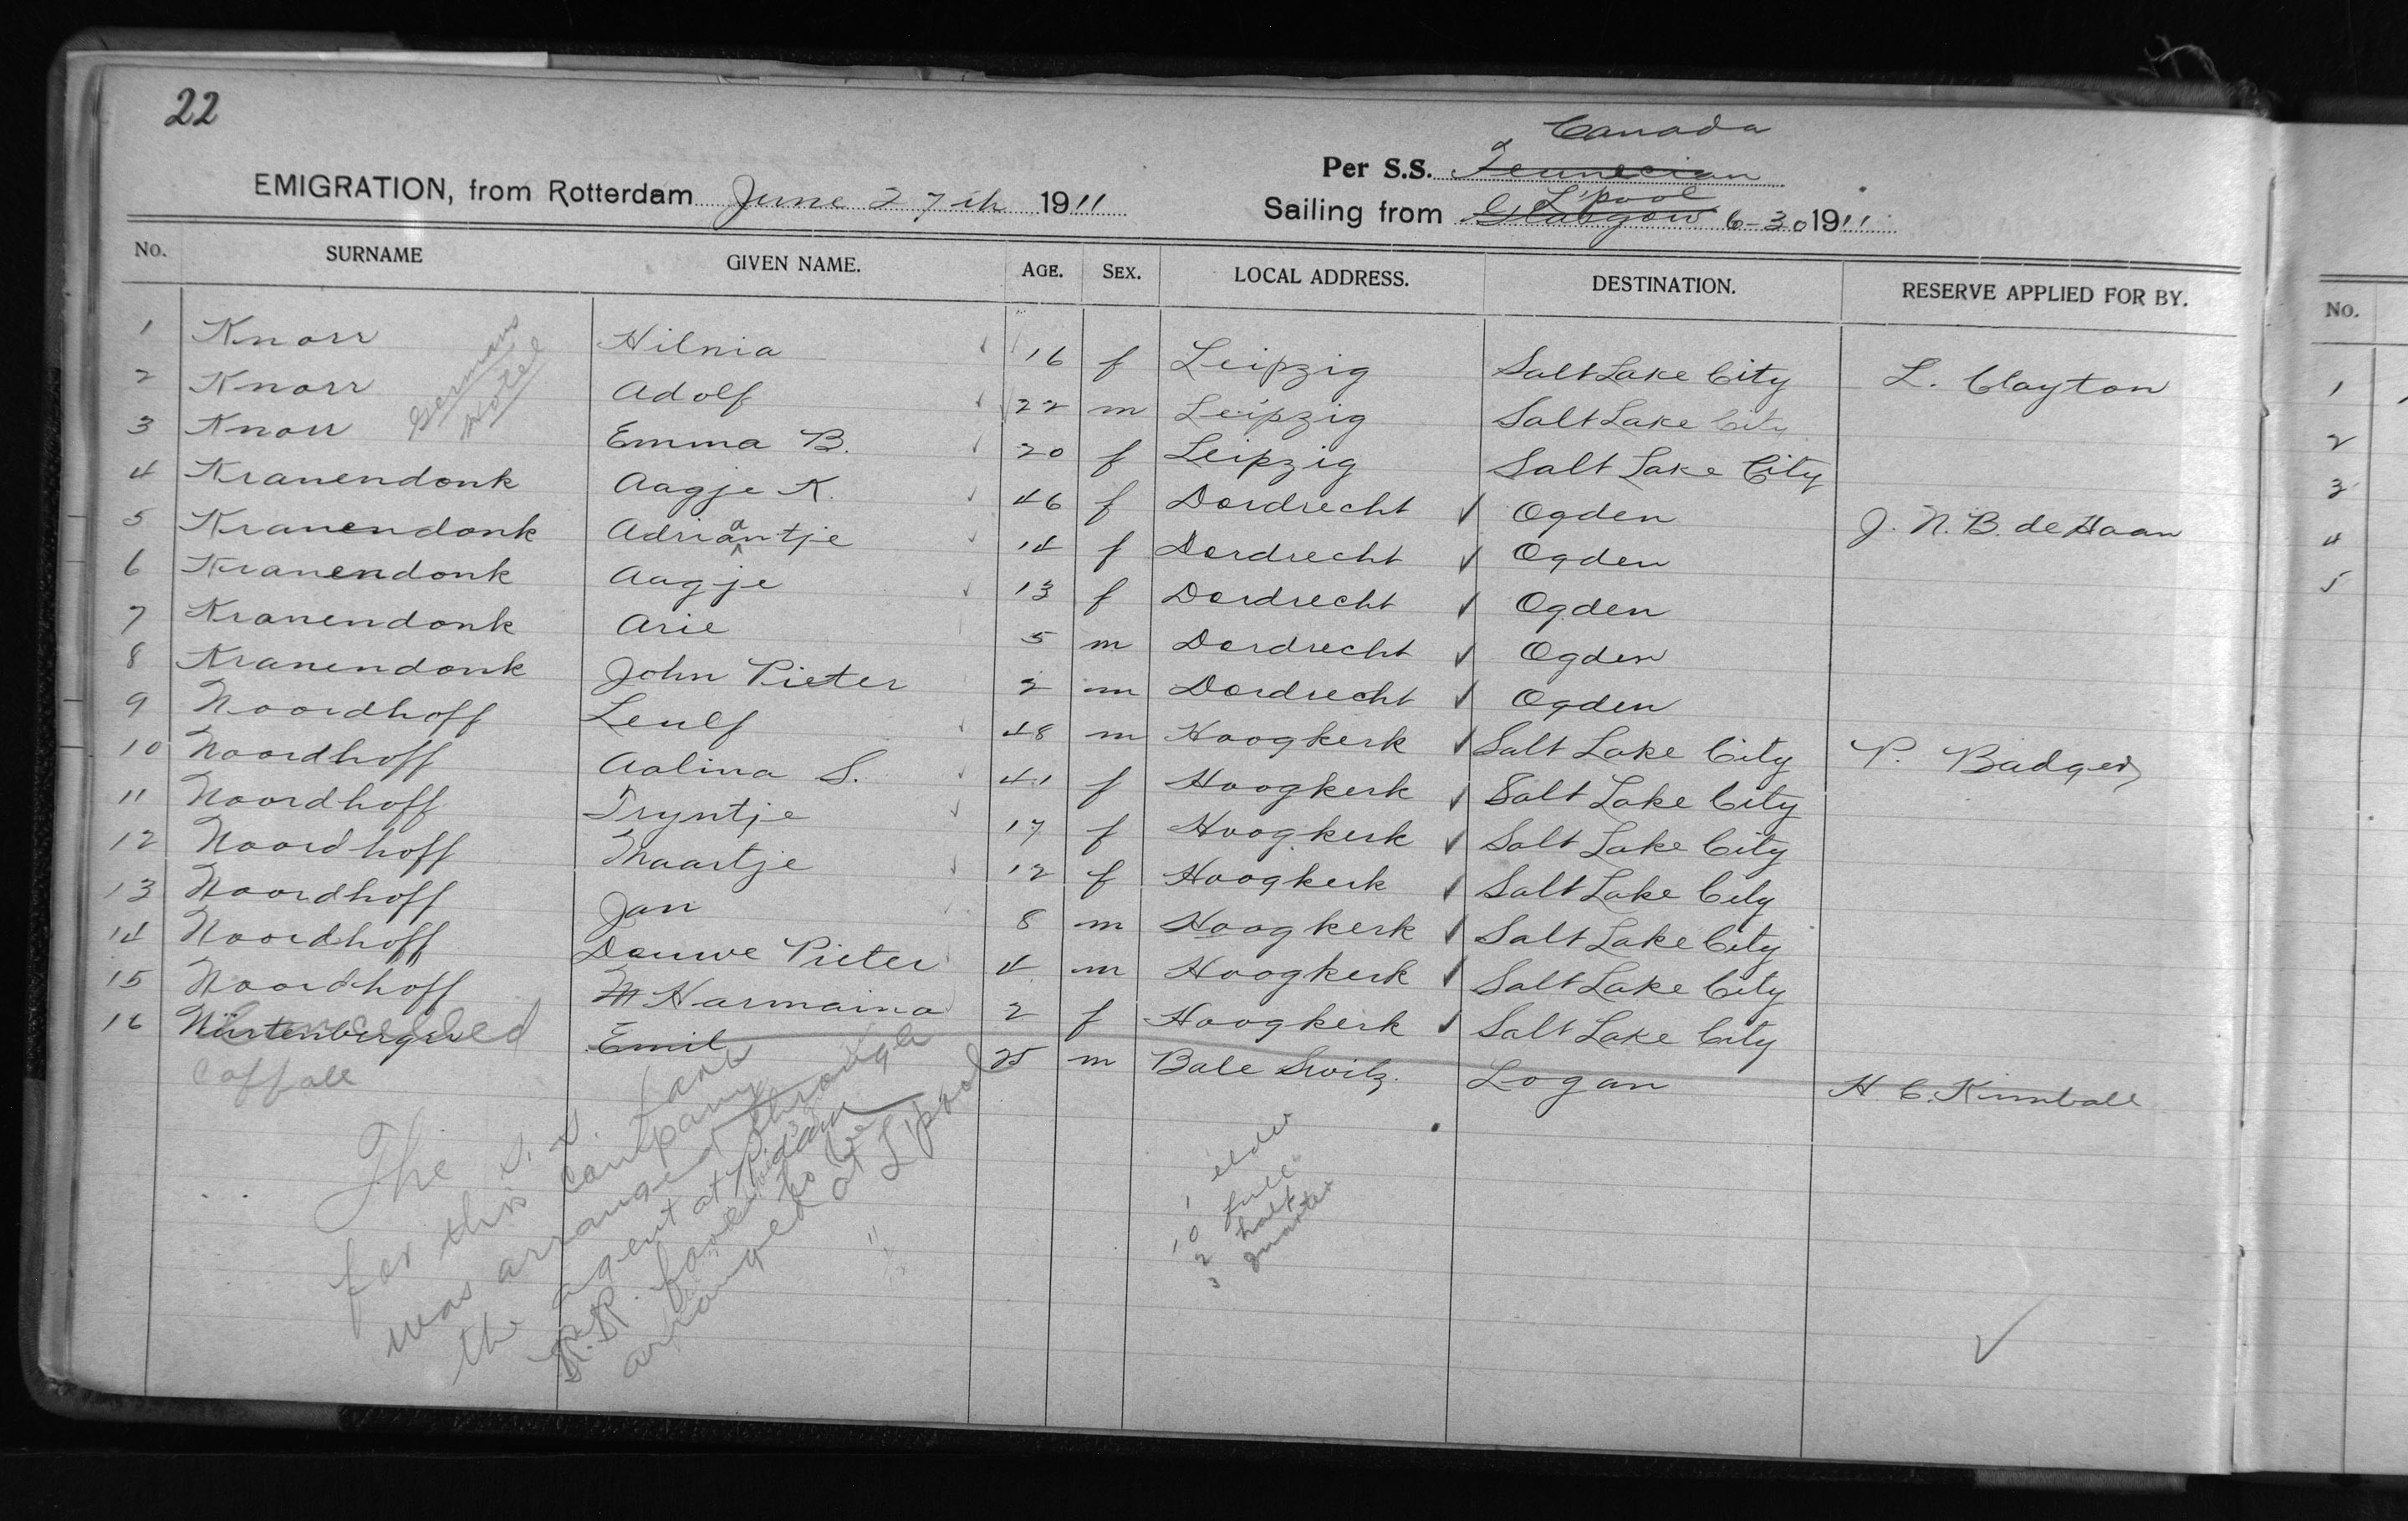 22
Canada
EMIGRATION, from Rotterdam June 27th 1911 Per S.S. Tunisian
L'pool
Sailing from Glasgow 6-30 1911
No. SURNAME GIVEN NAME. AGE. SEX. LOCAL ADDRESS. DESTINATION. RESERVE APPLIED FOR BY. No.
1 Knorr Hilnia 16 f Leipzig Salt Lake City L. Clayton 1
2 Knorr Adolf 22 m Leipzig Salt Lake City 2
3 Knorr Emma B. 20 f Leipzig Salt Lake City 3
Germans
Hotel
4 Kranendonk Aagje K. ✓ 46 f Dordrecht ✓ Ogden J. N. B. de Haan 4
5 Kranendonk Adriaantje ✓ 14 f Dordrecht ✓ Ogden 5
6 Kranendonk Aagje ✓ 13 f Dordrecht ✓ Ogden
7 Kranendonk Arie 5 m Dordrecht ✓ Ogden
8 Kranendonk John Pieter 2 m Dordrecht ✓ Ogden
9 Noordhoff Leulf ✓ 48 m Hoogkerk ✓ Salt Lake City P. Badger
10 Noordhoff Aalina S. ✓ 41 f Hoogkerk ✓ Salt Lake City
11 Noordhoff Tryntje ✓ 17 f Hoogkerk ✓ Salt Lake City
12 Noordhoff Maartje ✓ 12 f Hoogkerk ✓ Salt Lake City
13 Noordhoff Jan 8 m Hoogkerk ✓ Salt Lake City
14 Noordhoff Douwe Pieter 4 m Hoogkerk ✓ Salt Lake City
15 Noordhoff M Harmaina 2 f Hoogkerk ✓ Salt Lake City
16 Nürtenberger Emil 25 m Bale Switz. Logan H. C. Kimball
Cancelled
The S.S. fare
for this company
was arranged through
the agent at R'dam
R.R. fare to be
arranged at L'pool
1 elder
10 full
2 half
3 quarter
✓